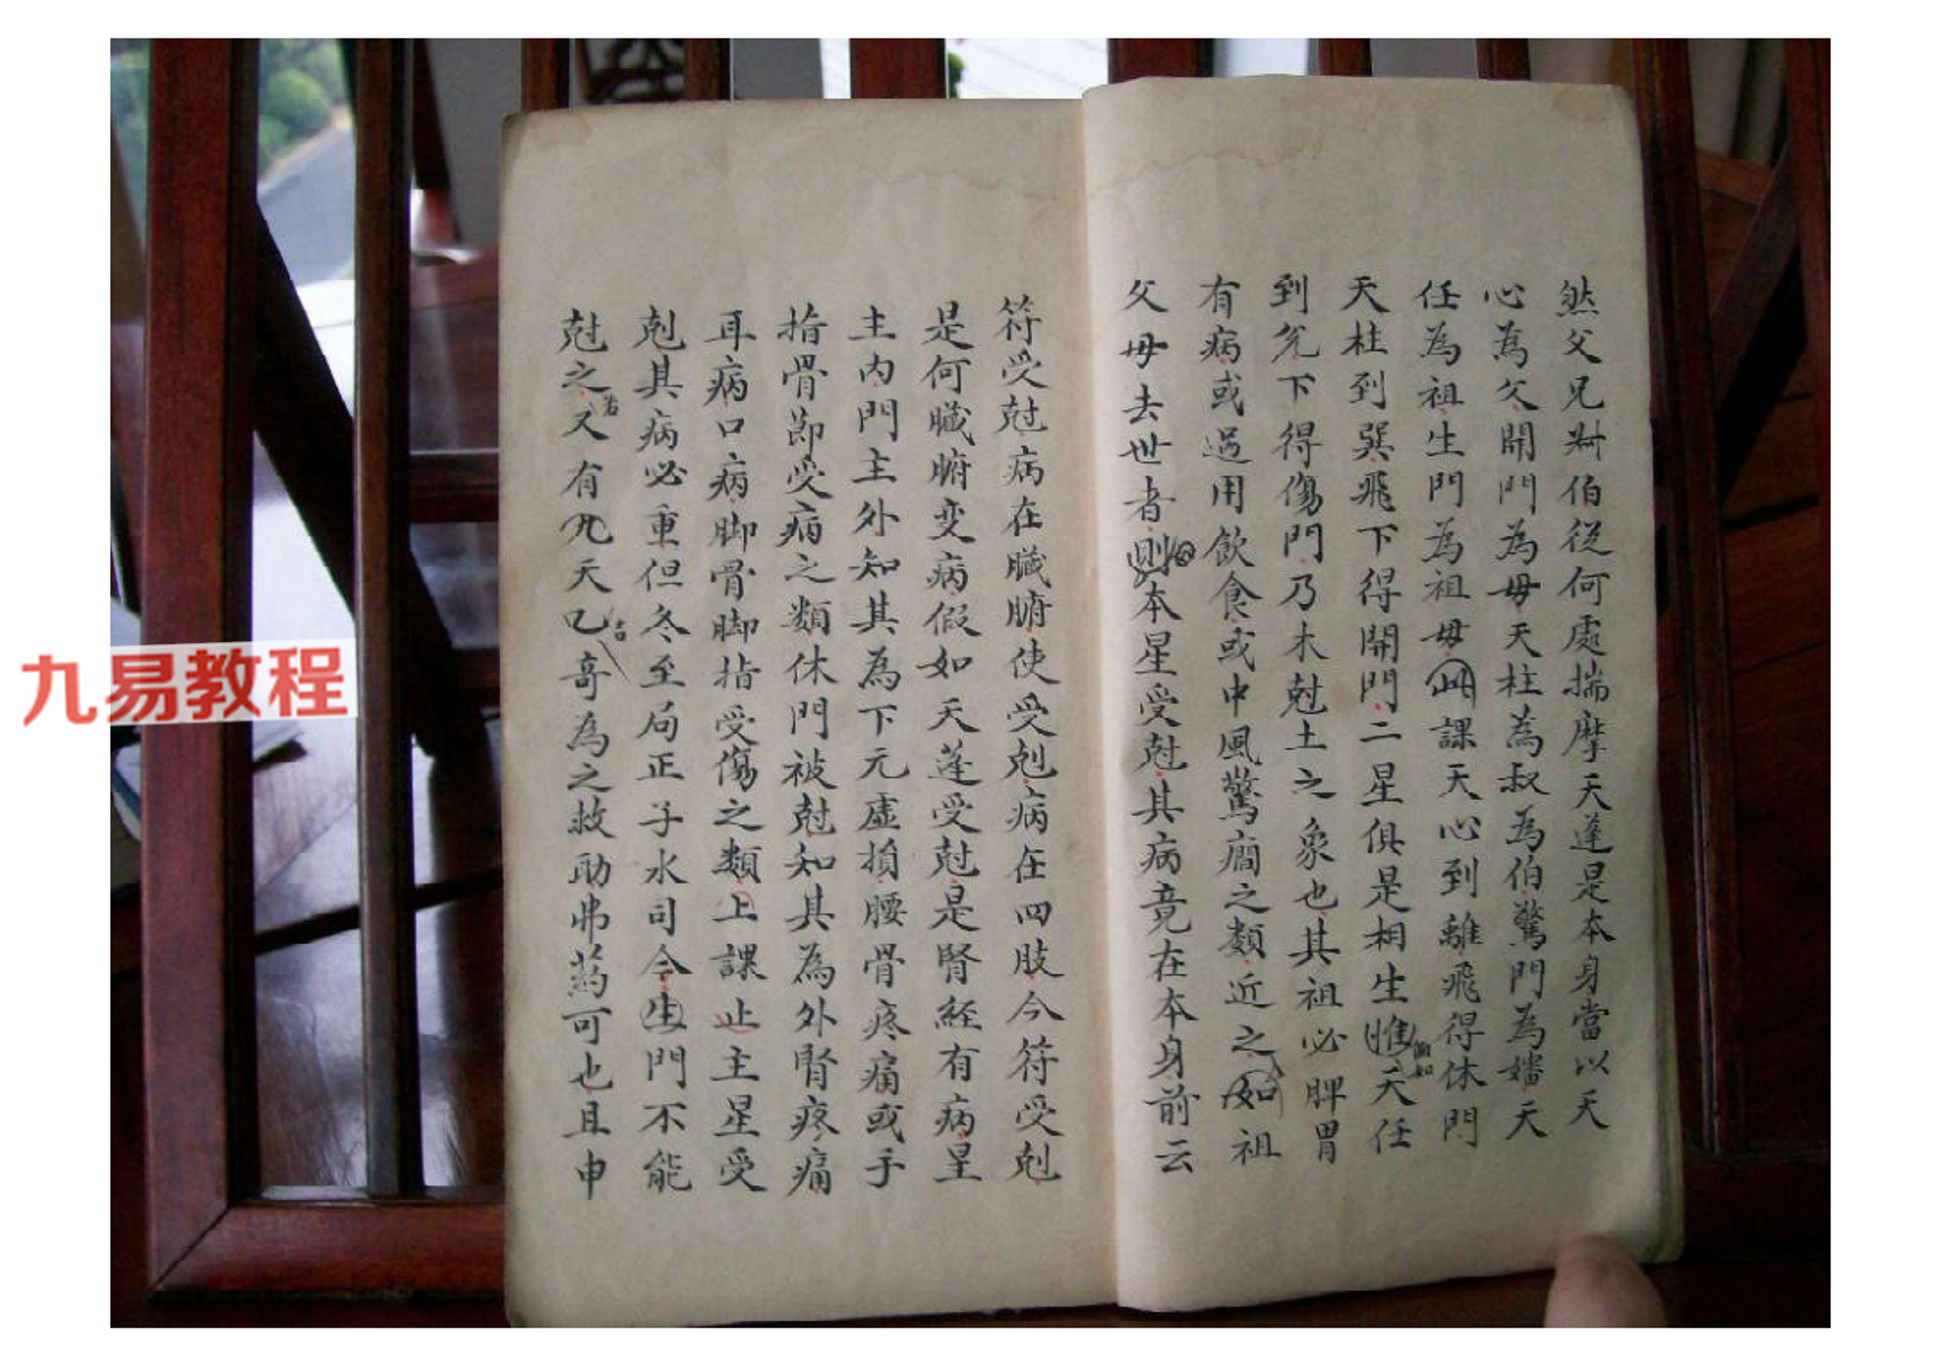 然父兄叔伯從何處揣摩天蓬是本身當以天
心為父開門為母天柱為叔為伯驚門為嬸天
任為祖生門為祖母此課天心到離飛得休門
天柱到巽飛下得開門二星俱是相生惟天任
到兌下得傷門乃木尅土之象也其祖必脾胃
有病或過用飲食或中風驚癎之類近之如祖
父母去世者則本星受尅其病竟在本身前云
符受尅病在臟腑使受剋病在四肢今符受剋
是何臟腑变病假如天蓬受尅是腎経有病星
主内門主外知其為下元虛損腰骨疼痛或手
指骨節受病之類休門被尅知其為外腎疼痛
耳病口病脚骨脚指受傷之類上課止主星受
剋其病必重但冬至局正子水司令生門不能
尅之又有九天乙奇為之救助弗葯可也且申
若
九易教程